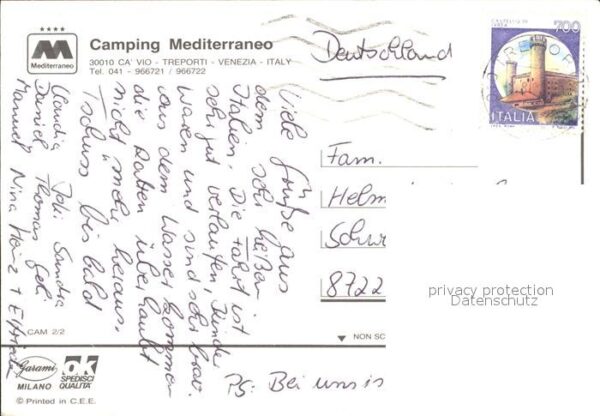 Camping Mediterraneo
Mediterraneo
30010 CA' VIO - TREPORTI - VENEZIA - ITALY
Tel. 041 - 966721 / 966722
Deutschland
700
ITALIA
Viele Grüße aus
dem sehr heißen
Italien. Die Fahrt ist
sehr gut verlaufen, Kinder
waren und sind sehr brav.
aus dem Wasser kommen
die Ratten überhaupt
nicht mehr heraus.
Tschüss bis bald
Claudia Joki Sandra
Daniel Thomas
Manuel Nina Heinz + Elfriede
PS: Bei uns is
Fam.
Helm
Schw
8722
privacy protection
Datenschutz
CAM 2/2
NON SC
Garami
MILANO
OK
SPEDISCI
QUALITA'
© Printed in C.E.E.